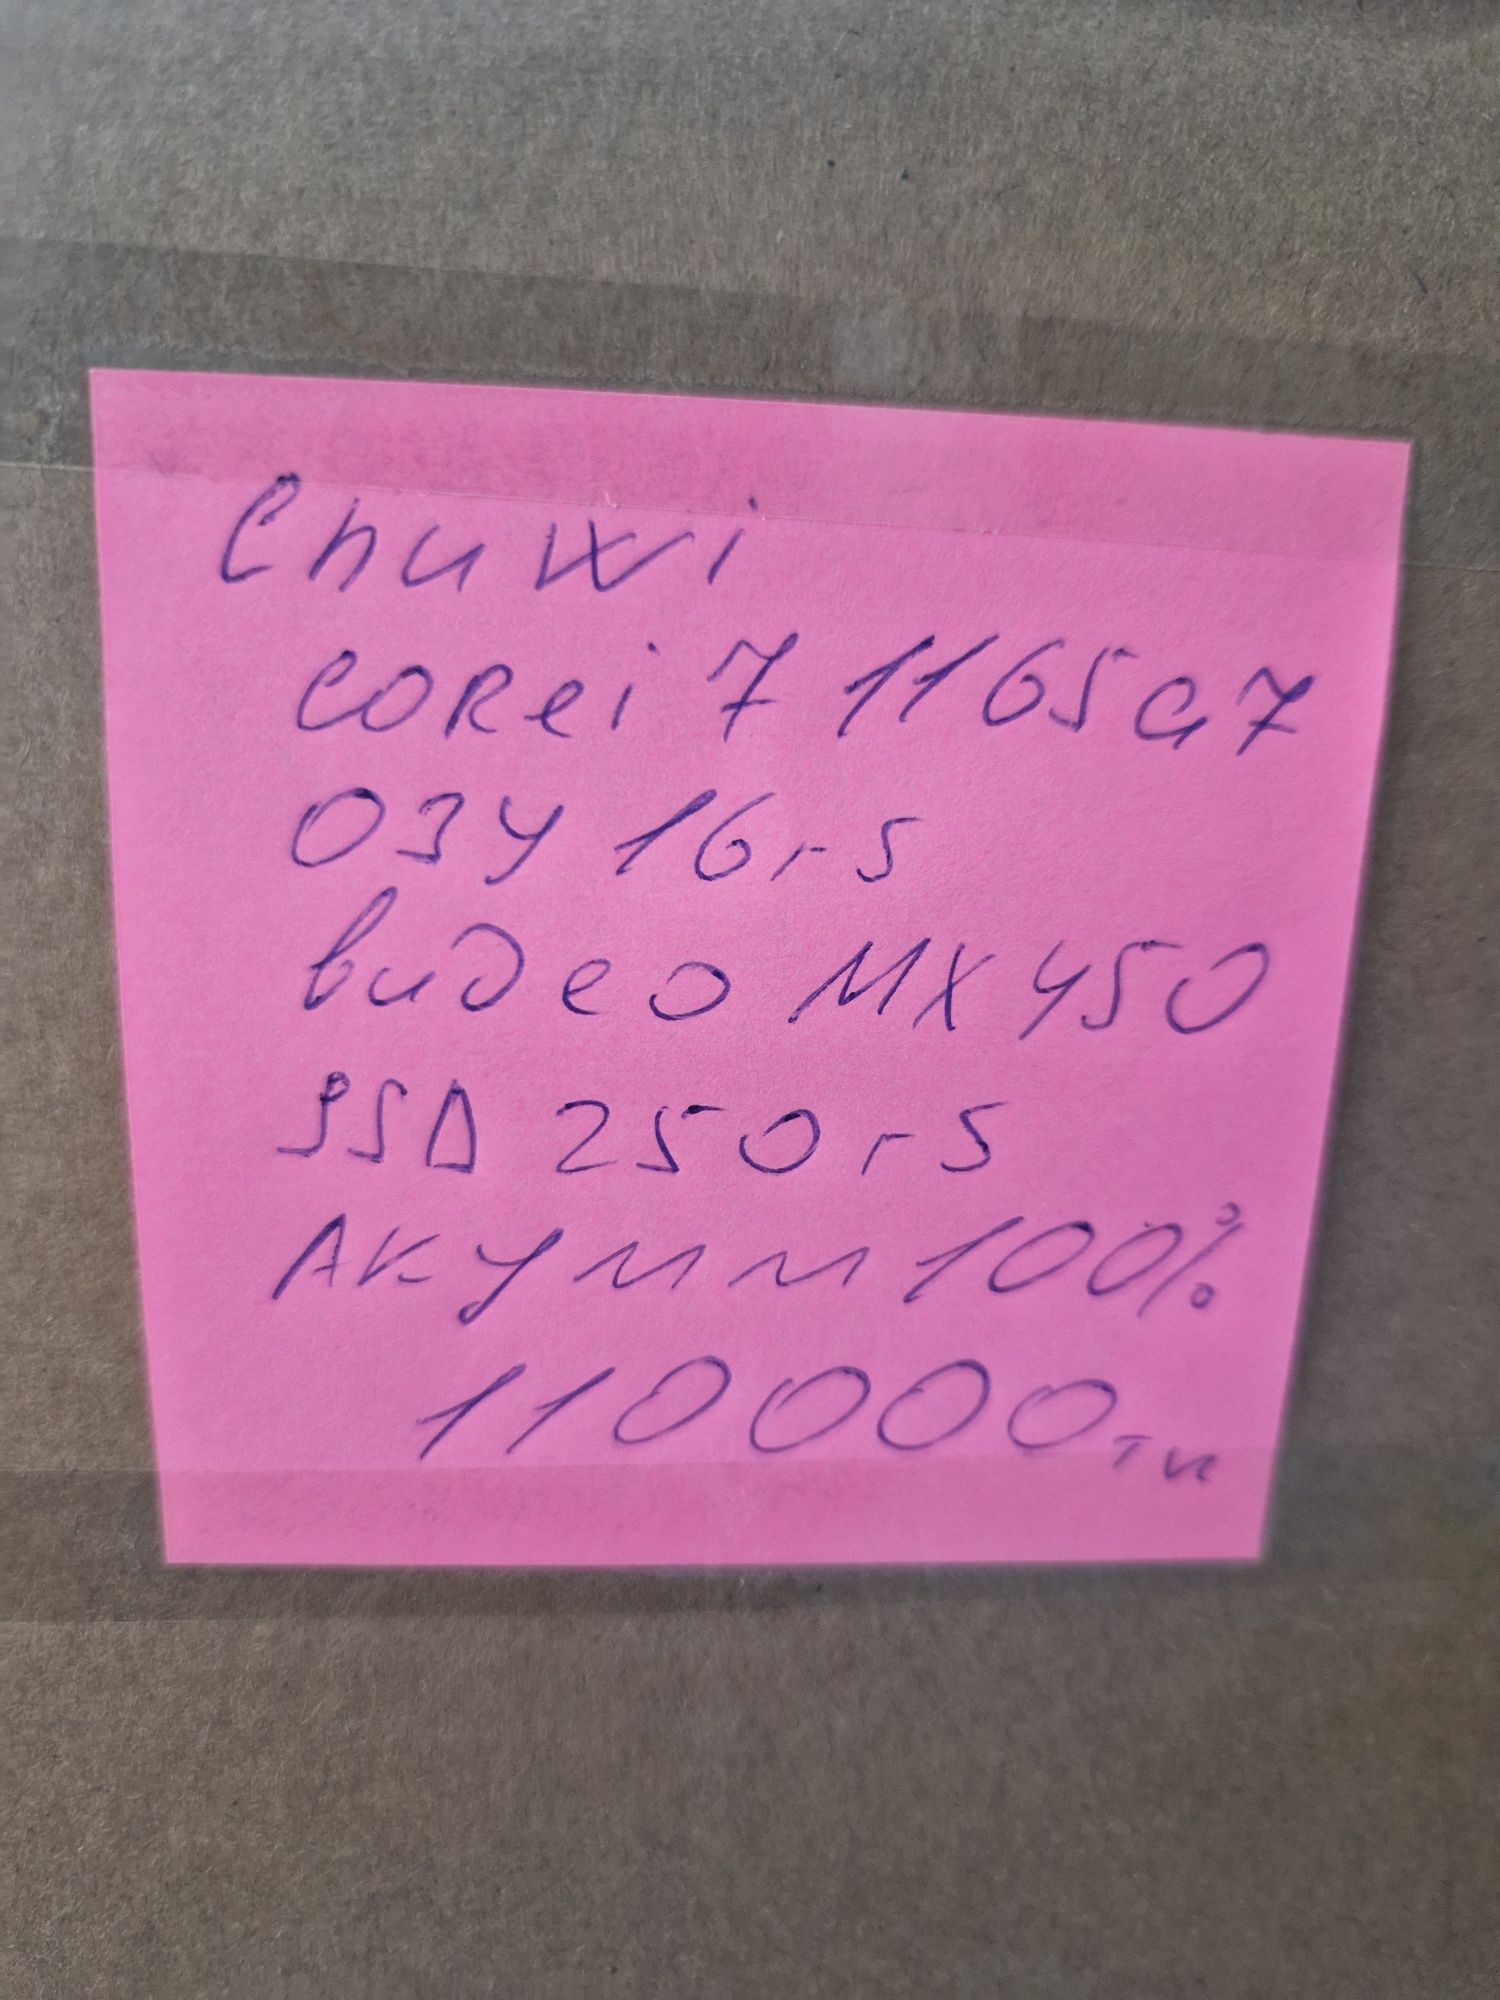 Chuwi
corei 7 1165G7
ОЗУ 16гб
видео MX450
SSD 250гб
Акумм 100%
110000тг